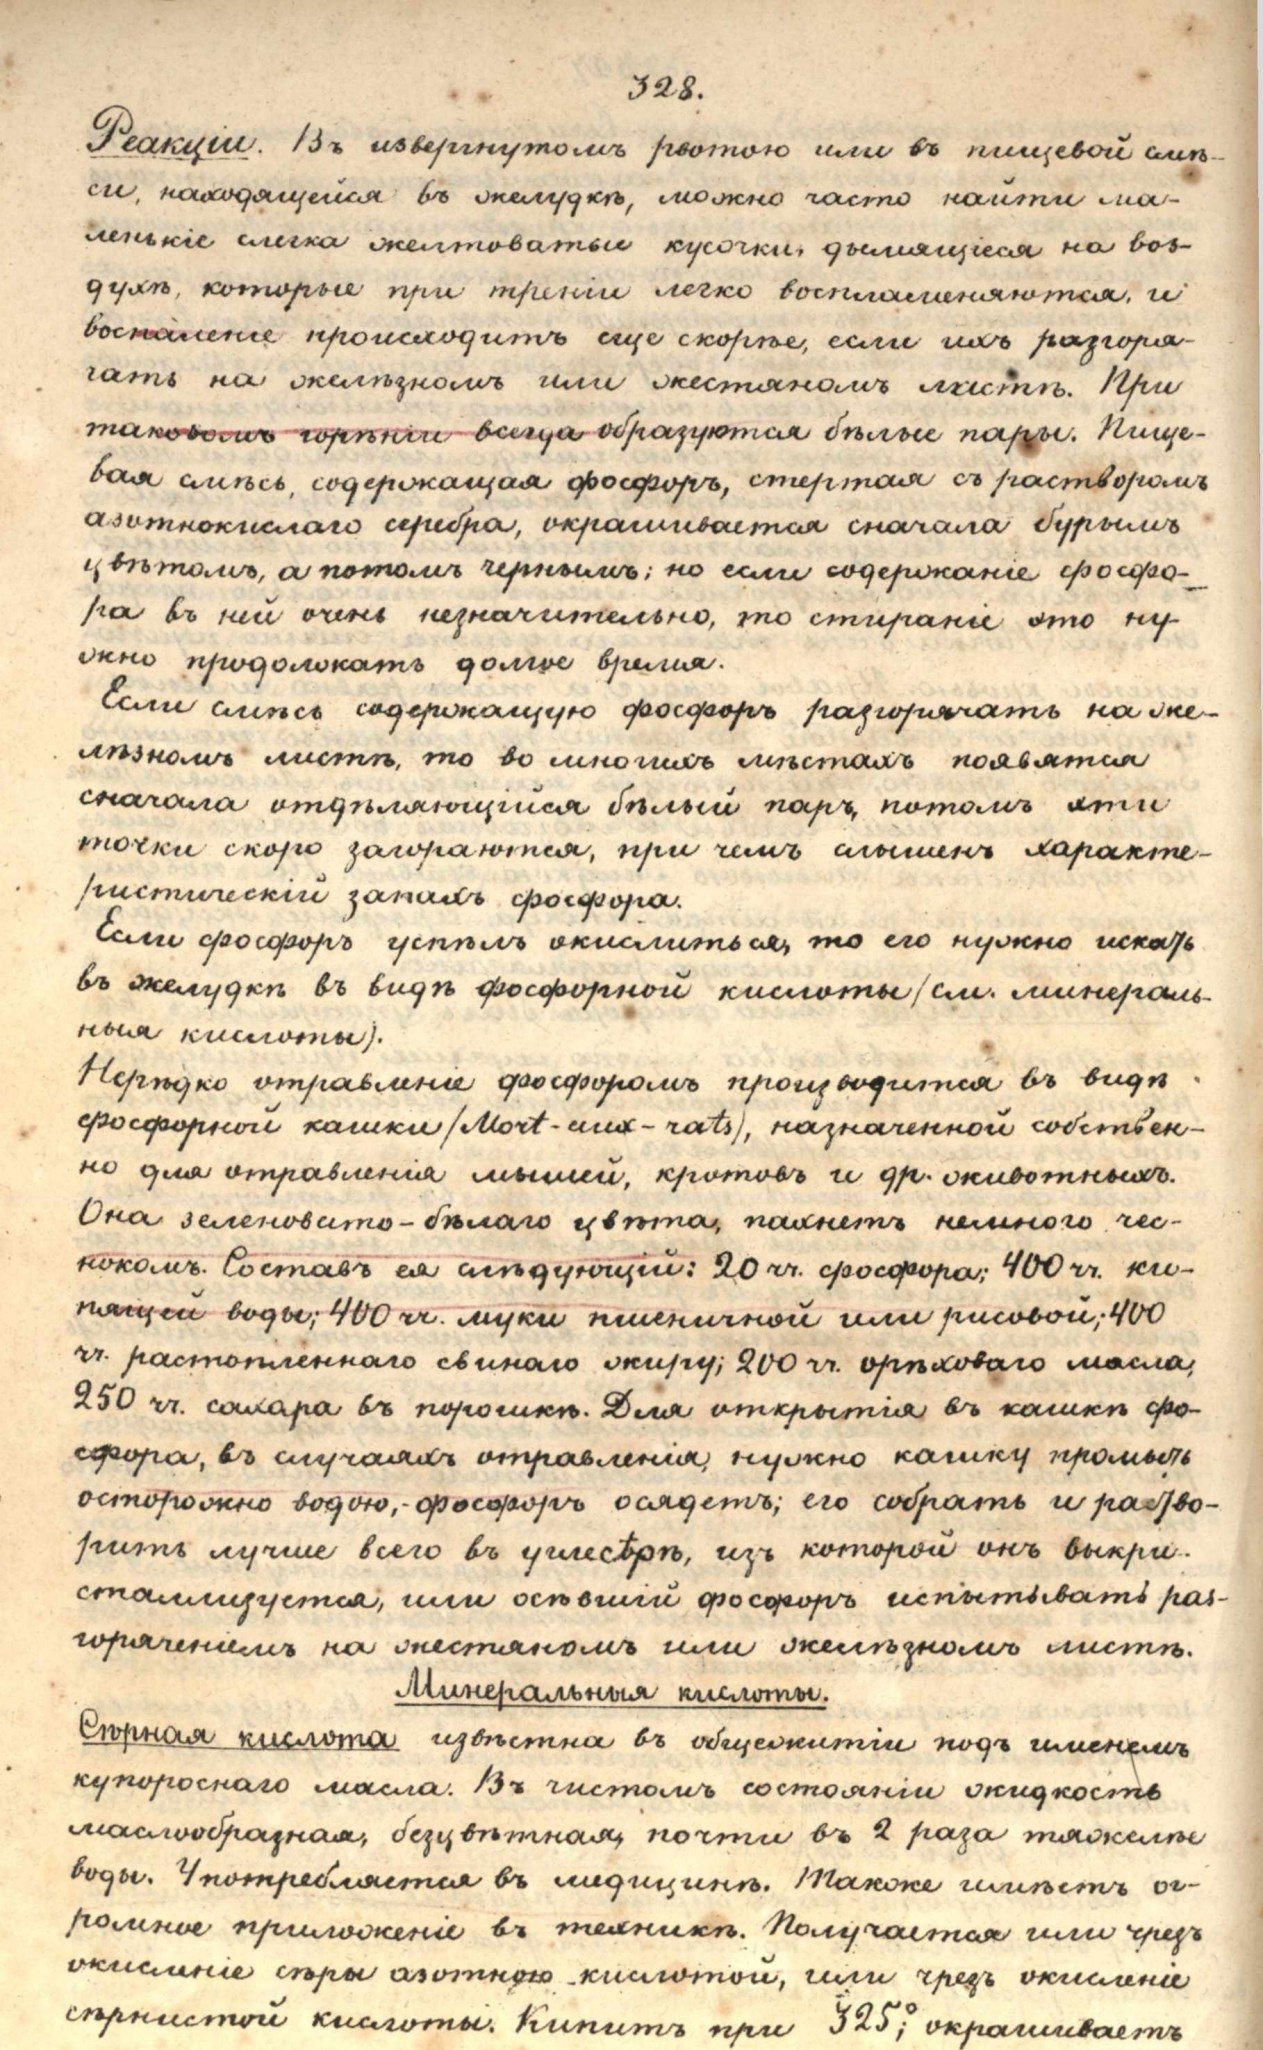 328.
Реакціи. Въ извергнутомъ рвотою или въ пищевой смѣ-
си, находящейся въ желудкѣ, можно часто найти ма-
ленькіе слегка желтоватые кусочки, дымящіеся на воз-
духѣ, которые при треніи легко воспламеняются, и
воспаленіе происходитъ еще скорѣе, если ихъ разгоря-
чать на желѣзномъ или жестяномъ листѣ. При
таковомъ горѣніи всегда образуются бѣлые пары. Пище-
вая смѣсь, содержащая фосфоръ, стертая съ растворомъ
азотнокислаго серебра, окрашивается сначала бурымъ
цвѣтомъ, а потомъ чернымъ; но если содержаніе фосфо-
ра въ ней очень незначительно, то стираніе это ну-
жно продолжать долгое время.
Если смѣсь содержащую фосфоръ разгорячать на же-
лѣзномъ листѣ, то во многихъ мѣстахъ появятся
сначала отдѣляющійся бѣлый паръ, потомъ эти
точки скоро загораются, при чемъ слышенъ характе-
ристическій запахъ фосфора.
Если фосфоръ успѣлъ окислиться, то его нужно искать
въ желудкѣ въ видѣ фосфорной кислоты (см. минераль-
ныя кислоты).
Нерѣдко отравленіе фосфоромъ производится въ видѣ
фосфорной кашки (Mort-aux-rats), назначенной собствен-
но для отравленія мышей, кротовъ и др. животныхъ.
Она зеленовато-бѣлаго цвѣта, пахнетъ немного чес-
нокомъ. Составъ ея слѣдующій: 20 чч. фосфора; 400 чч. ки-
пящей воды; 400 чч. муки пшеничной или рисовой; 400
чч. растопленнаго свинаго жиру; 200 чч. орѣховаго масла,
250 чч. сахара въ порошкѣ. Для открытія въ кашкѣ фо-
сфора, въ случаяхъ отравленія, нужно кашку промыть
осторожно водою, - фосфоръ осядетъ; его собрать и раство-
рить лучше всего въ углесѣрѣ, изъ которой онъ выкри-
сталлизуется, или осѣвшій фосфоръ испытывать раз-
горяченіемъ на жестяномъ или желѣзномъ листѣ.
Минеральныя кислоты.
Сѣрная кислота извѣстна въ общежитіи подъ именемъ
купороснаго масла. Въ чистомъ состояніи жидкость
маслообразная, безцвѣтная, почти въ 2 раза тяжелѣе
воды. Употребляется въ медицинѣ. Также имѣетъ ог-
ромное приложеніе въ техникѣ. Получается или чрезъ
окисленіе сѣры азотною кислотой, или чрезъ окисленіе
сѣрнистой кислоты. Кипитъ при 325°; окрашиваетъ